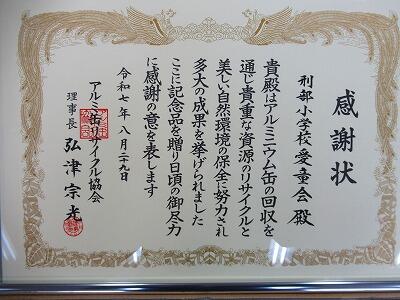 感謝状
刑部小学校 愛童会 殿
貴殿はアルミニウム缶の回収を
通じ貴重な資源のリサイクルと
美しい自然環境の保全に努力され
多大の成果を挙げられました
ここに記念品を贈り日頃の御尽力
に感謝の意を表します
令和七年八月二十九日
アルミ缶リサイクル協会
理事長 弘津宗光